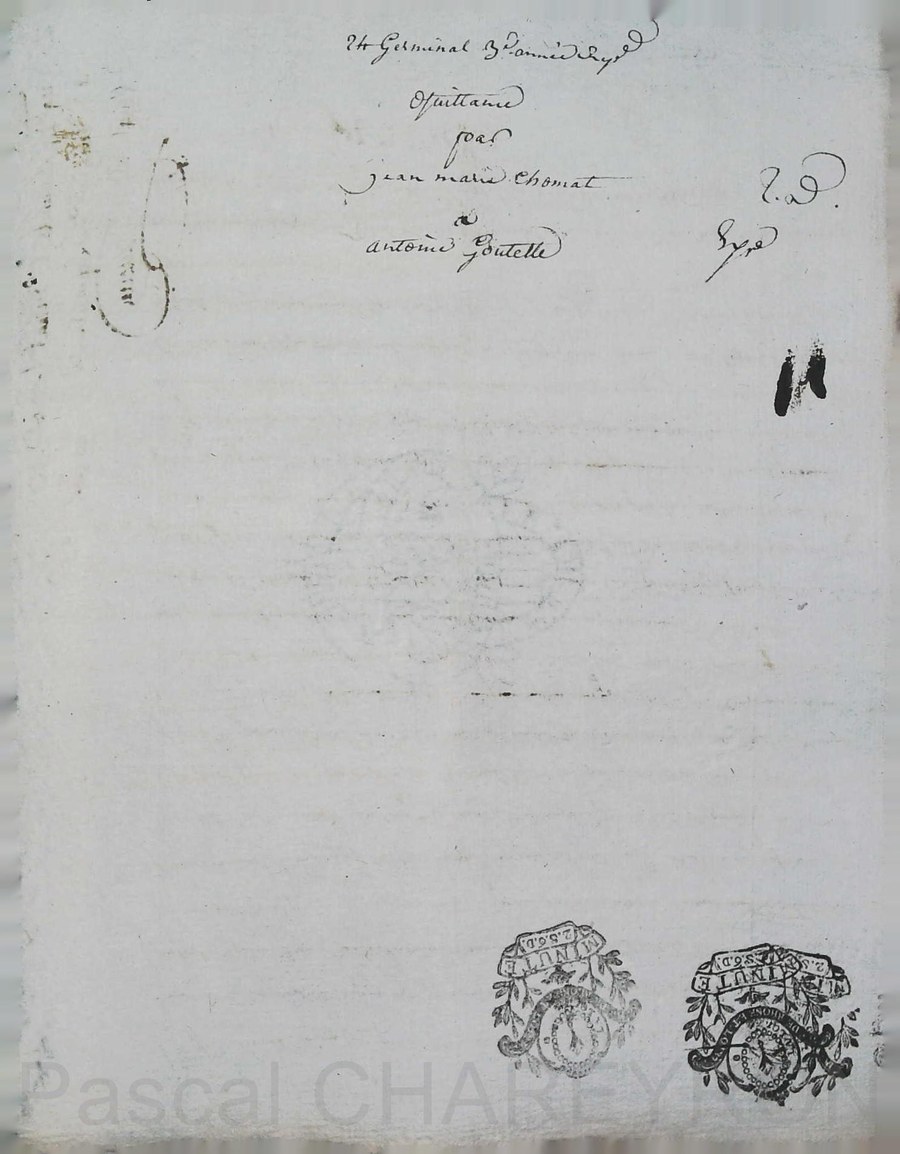 24 Germinal 3e année Expé
Quittance
par
jean marie Chomat
a
antoine Goutelle
R. d.
Expé
MINUTE
2.S.6.D.
MINUTE
2.S.6.D.
Pascal CHAREYRON